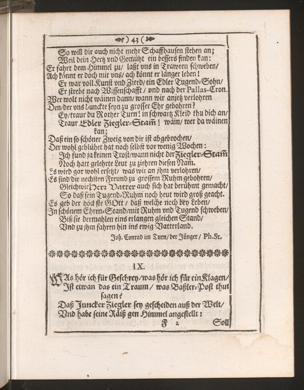 ( 43 )
So will dir auch nicht mehr Schaffhausen stehen an;
Weil dein Hertz und Gemüht ein bessers funden kan:
Er fahrt dem Himmel zu / laßt uns in Trawren schweben /
Ach könnt er doch mit uns / ach könnt er länger leben!
Er war voll Kunst und Zierd / ein Edler Tugend-Sohn /
Er strebt nach Wissenschafft / und nach der Pallas-Cron.
Wer wolt nicht wäinen dann / wann wir anjetz verlohren
Den der uns zur seyn so grosser Ehr gebohren?
Ey / traur du Rohter Turn! in schwartz Kleid thu dich an /
Traur Edler Ziegler-Stam̃; wäin / wer da wäinen
kan;
Daß ein so schöner Zweig von dir ist abgebrochen /
Der wohl geblühet hat noch selbst vor wenig Wochen:
Ich fund zu keinen Trost wann nicht der Ziegler-Stam̃
Noch hart gelehrte Leut zu ziehren diesen Nam.
Es wird gar wohl ersetzt / was wir an ihm verlohren /
Es sind die nechsten Freund zu grossem Ruhm gebohren /
Gleichwie Herr Vatter auch sich hat berühmt gemacht /
So daß sein Tugend-Ruhm noch heut wird groß geacht.
Es geb der höchste GOtt / daß welche noch bey Leben /
In schönem Ehren-Stand mit Ruhm und Tugend schweben /
Biß sie dermahlen eins erlangen gleichen Stand /
Und zu ihm fahren hin ins ewig Vatterland.
Joh. Conrad im Turn / der Jünger / Ph. St.
IX.
WAs hör ich für Geschrey / was hör ich für ein Klagen /
Ist etwan das ein Traum / was Baßler-Post thut
sagen?
Daß Juncker Ziegler sey gescheiden auß der Welt /
Und habe seine Räiß gen Himmel angestellt:
F 2 Soll